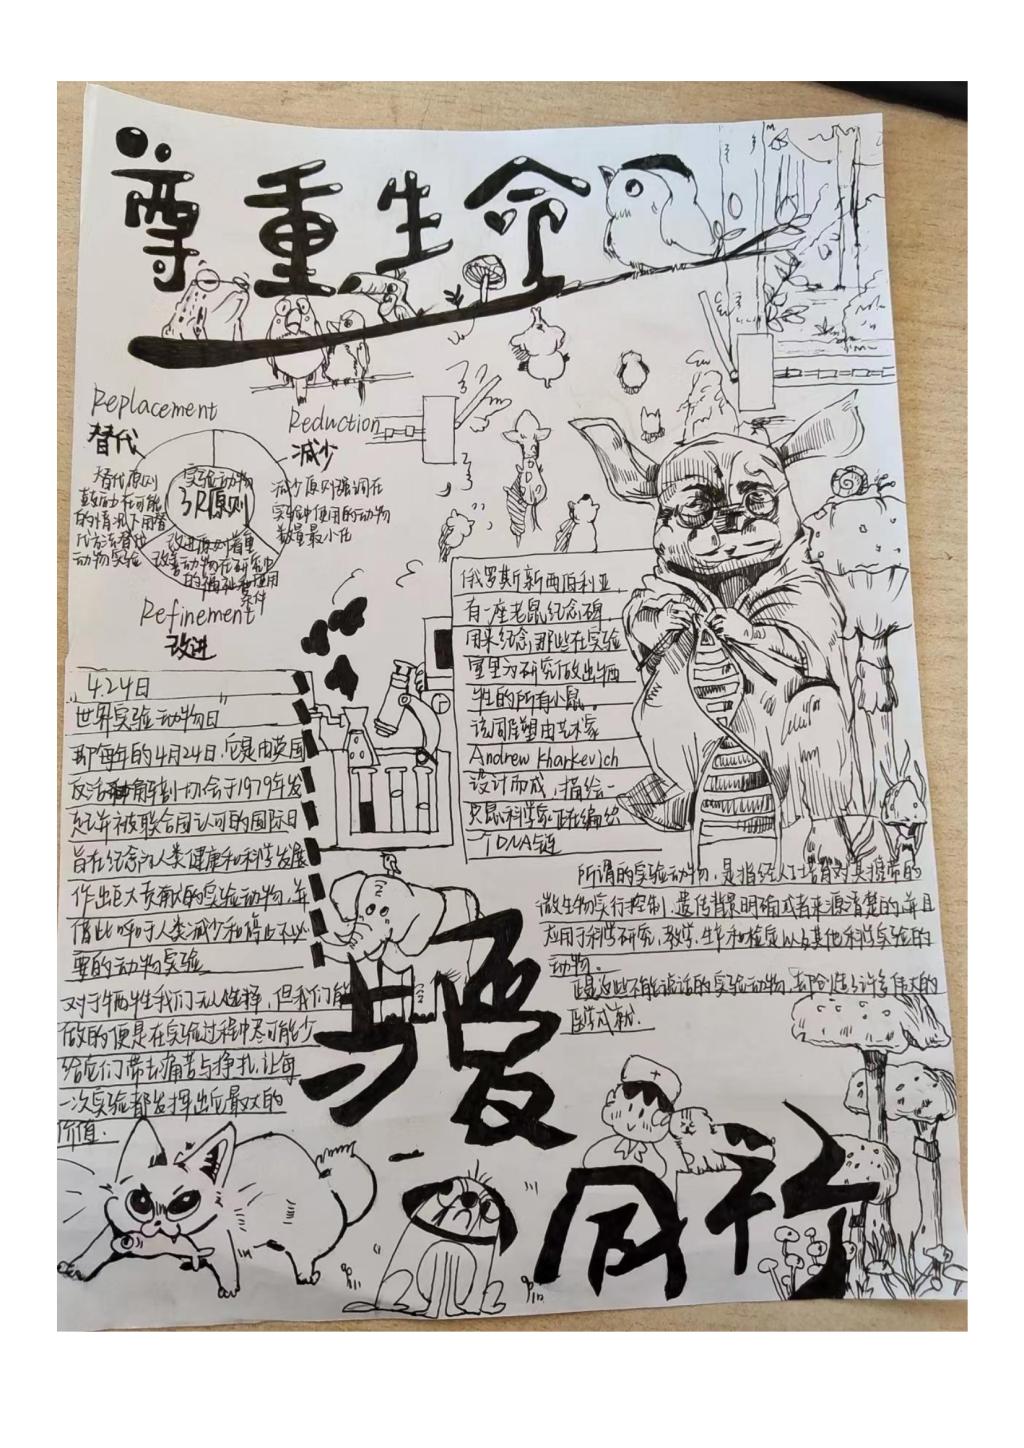 尊重生命
Replacement
替代
替代原则
鼓励在可能
的情况下用替
代方法替代
动物实验
Reduction
减少
减少原则强调在
实验中使用的动物
数量最小化
实验动物
3R原则
改进原则着重
改善动物在研究中
的福祉和使用
条件
Refinement
改进
俄罗斯新西伯利亚,
有一座老鼠纪念碑,
用来纪念那些在实验
室里为研究做出牺
牲的所有小鼠。
该铜雕塑由艺术家
Andrew Kharkevich
设计而成,描绘一
只鼠科学家正在编织
一个DNA链
“4.24日
世界实验动物日”
即每年的4月24日,它是由英国
反活体解剖协会于1979年发
起,并被联合国认可的国际日
旨在纪念为人类健康和科学发展
作出巨大贡献的实验动物,并
借此呼吁人类减少和停止不必
要的动物实验
对于牺牲我们无从选择,但我们能
做的便是在实验过程中尽可能少
给它们带去痛苦与挣扎,让每
一次实验都发挥出它最大的
价值.
所谓的实验动物,是指经人工培育对其携带的
微生物实行控制,遗传背景明确或者来源清楚的并且
应用于科学研究,教学,生产和检定以及其他科学实验的
动物。
正是这些不能说话的实验动物,却创造了许多伟大的
医学成就.
与爱
同行